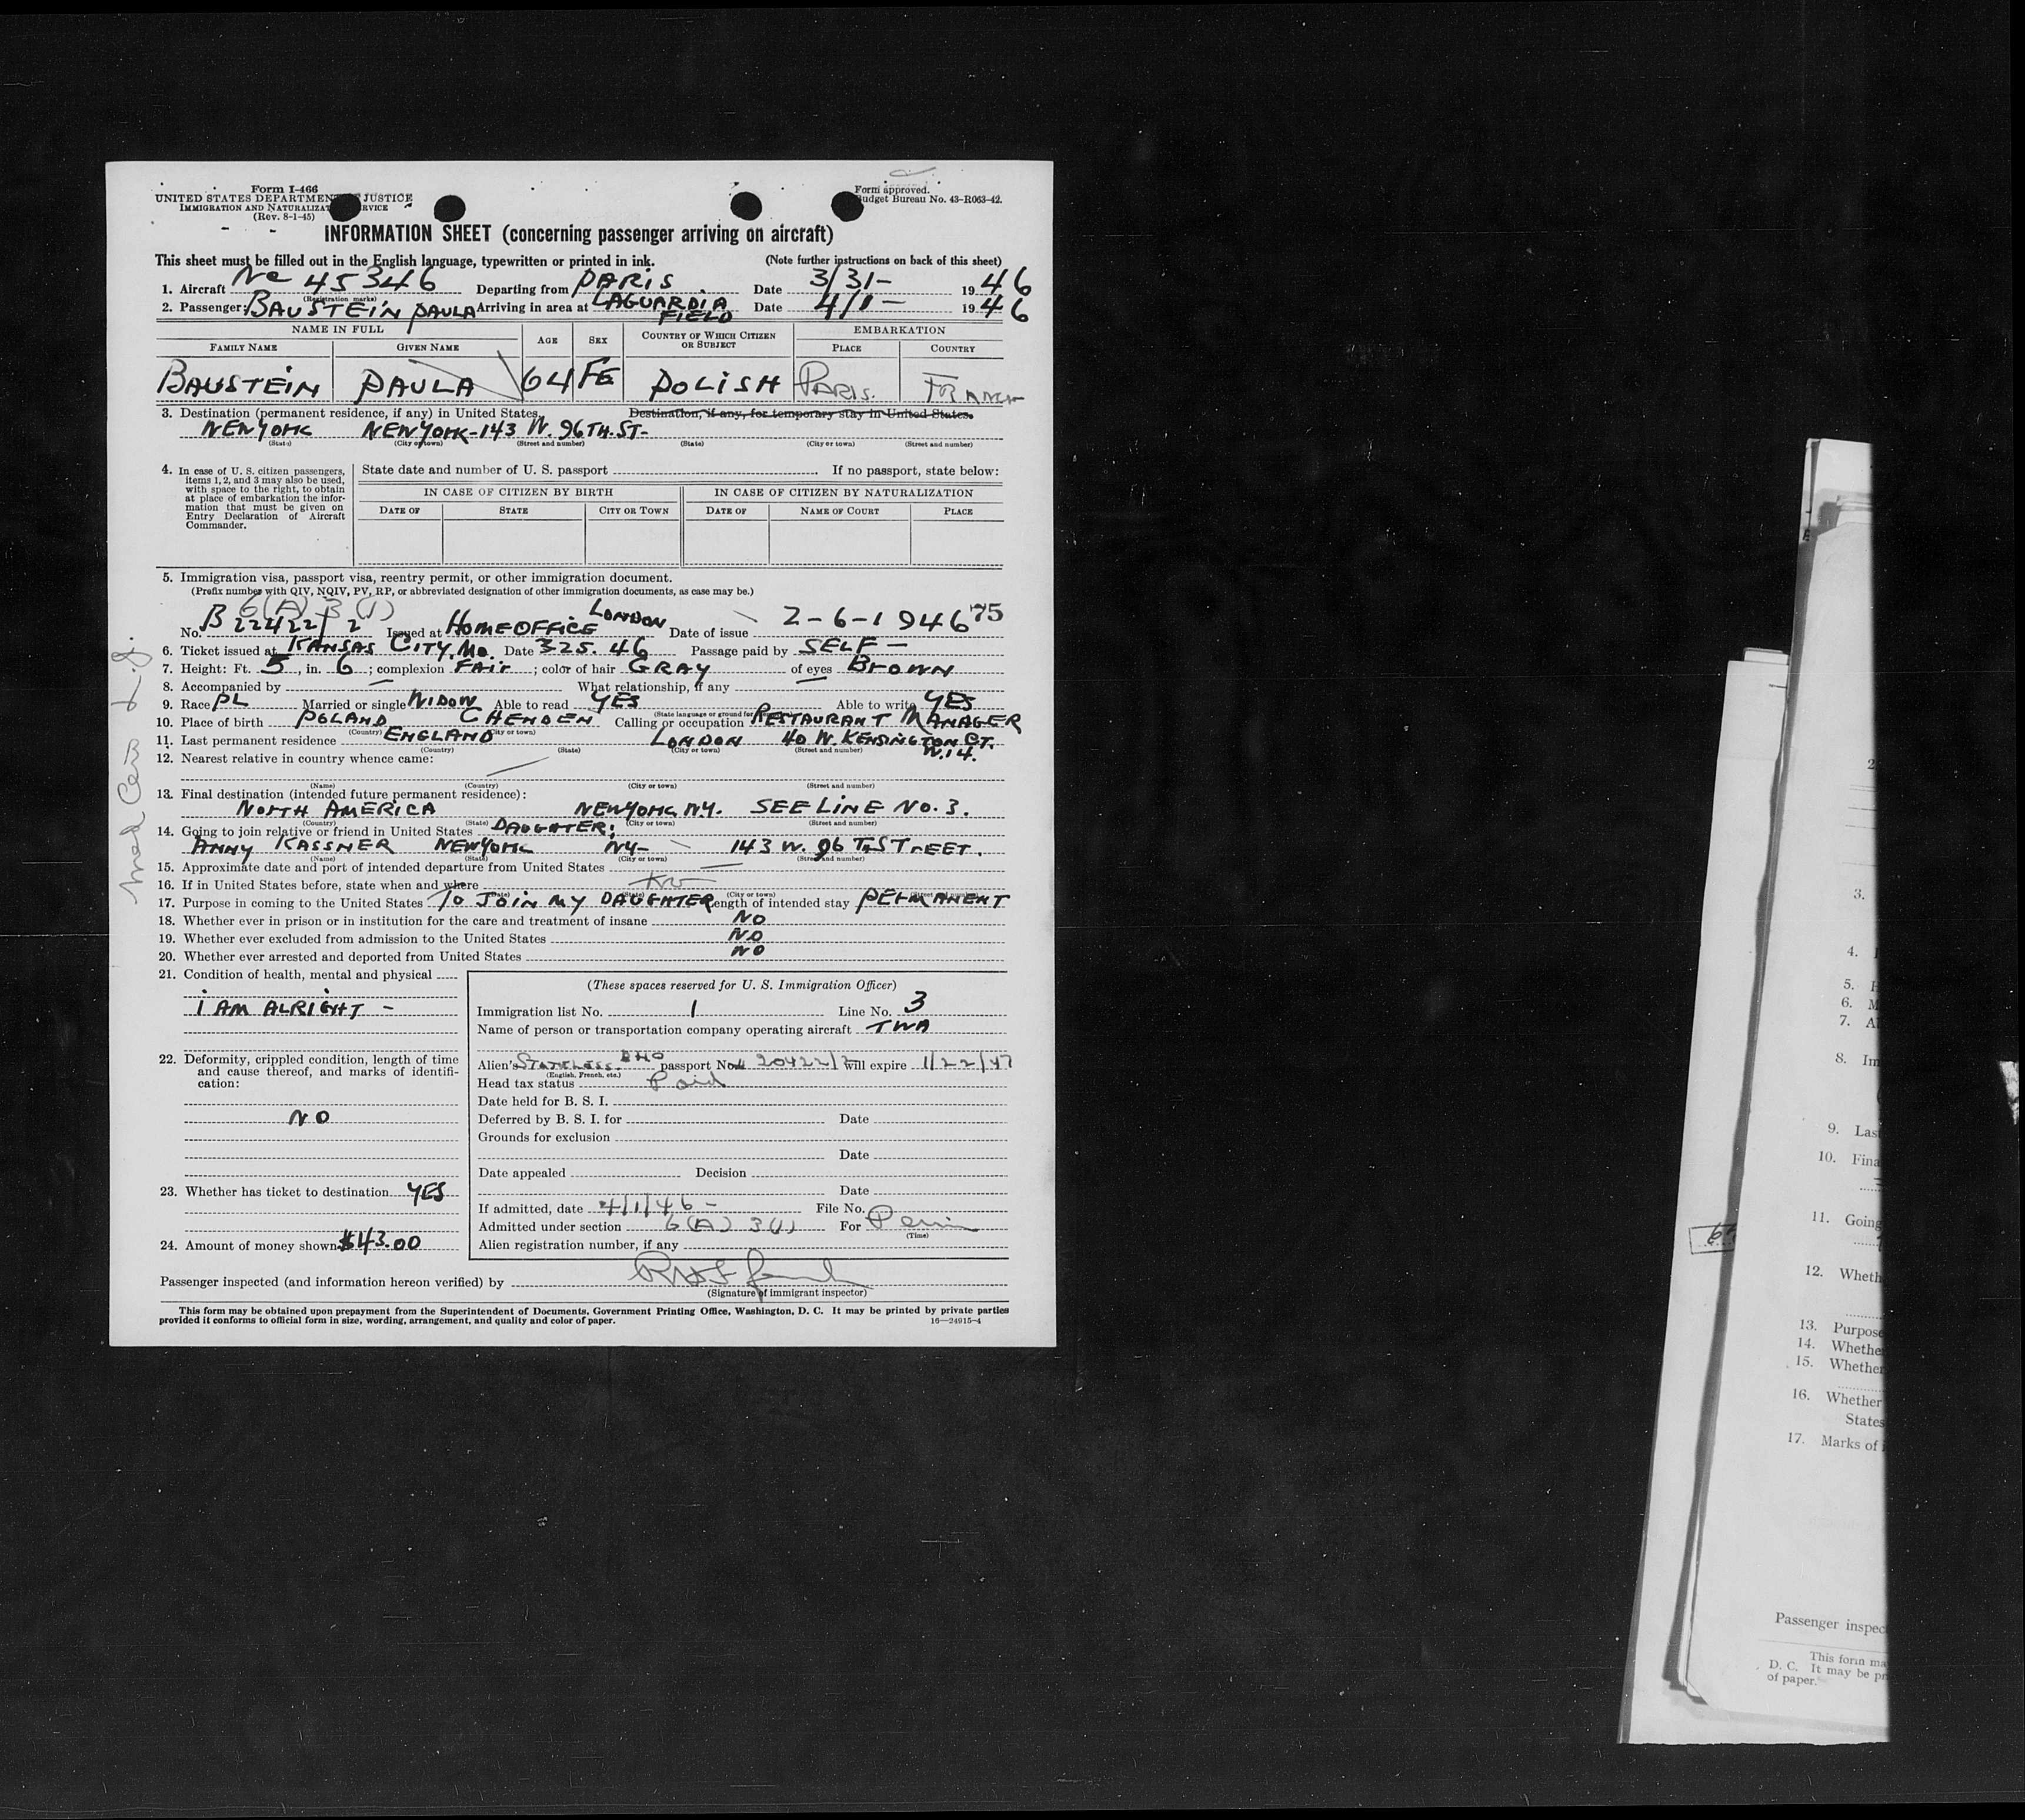 Form I-466
UNITED STATES DEPARTMENT JUSTICE
IMMIGRATION AND NATURALIZAT RVICE
(Rev. 8-1-45)
Form approved.
Budget Bureau No. 43-R063-42.
INFORMATION SHEET (concerning passenger arriving on aircraft)
This sheet must be filled out in the English language, typewritten or printed in ink. (Note further instructions on back of this sheet)
1. Aircraft Nc 45346 Departing from PARIS Date 3/31- 1946
(Registration marks)
2. Passenger: BAUSTEIN PAULA Arriving in area at LAGUARDIA FIELD Date 4/1- 1946
NAME IN FULL AGE SEX COUNTRY OF WHICH CITIZEN OR SUBJECT EMBARKATION
FAMILY NAME GIVEN NAME PLACE COUNTRY
BAUSTEIN PAULA 64 FE POLISH PARIS. FRANCE
3. Destination (permanent residence, if any) in United States. Destination, if any, for temporary stay in United States.
NEWYORK NEWYORK-143 W. 96TH. ST-
(State) (City or town) (Street and number) (State) (City or town) (Street and number)
4. In case of U. S. citizen passengers, items 1, 2, and 3 may also be used, with space to the right, to obtain at place of embarkation the information that must be given on Entry Declaration of Aircraft Commander.
State date and number of U. S. passport If no passport, state below:
IN CASE OF CITIZEN BY BIRTH IN CASE OF CITIZEN BY NATURALIZATION
DATE OF STATE CITY OR TOWN DATE OF NAME OF COURT PLACE
5. Immigration visa, passport visa, reentry permit, or other immigration document.
(Prefix number with QIV, NQIV, PV, RP, or abbreviated designation of other immigration documents, as case may be.)
6(A) 3 (1)
No. B 22422/2 Issued at HOMEOFFICE LONDON Date of issue 2-6-1946 75
6. Ticket issued at KANSAS CITY, Mo. Date 325.46 Passage paid by SELF-
7. Height: Ft. 5, in. 6; complexion FAIr; color of hair GRAY of eyes BROWN
8. Accompanied by — What relationship, if any —
9. Race PL Married or single WIDOW Able to read YES Able to write YES
10. Place of birth POLAND CHENDEN Calling or occupation RESTAURANT MANAGER
(Country) (City or town)
11. Last permanent residence ENGLAND LONDON 40 W. KENSINGTON CT. W.14.
(Country) (State) (City or town) (Street and number)
12. Nearest relative in country whence came: —
(Name) (Country) (City or town) (Street and number)
13. Final destination (intended future permanent residence):
NORTH AMERICA NEWYORK, NY. SEE LINE NO. 3.
(Country) (State) (City or town) (Street and number)
14. Going to join relative or friend in United States DAUGHTER:
ANNY KASSNER NEWYORK NY- 143 W. 96 TH STREET.
(Name) (State) (City or town) (Street and number)
15. Approximate date and port of intended departure from United States —
16. If in United States before, state when and where No
17. Purpose in coming to the United States TO JOIN MY DAUGHTER Length of intended stay PERMANENT
18. Whether ever in prison or in institution for the care and treatment of insane NO
19. Whether ever excluded from admission to the United States NO
20. Whether ever arrested and deported from United States NO
21. Condition of health, mental and physical
I AM ALRIGHT -
22. Deformity, crippled condition, length of time and cause thereof, and marks of identification:
NO
23. Whether has ticket to destination YES
24. Amount of money shown $43.00
(These spaces reserved for U. S. Immigration Officer)
Immigration list No. 1 Line No. 3
Name of person or transportation company operating aircraft TWA
Alien's STATELESS. BHO passport No. 20422/2 will expire 1/22/47
(English, French, etc.)
Head tax status Paid
Date held for B. S. I.
Deferred by B. S. I. for Date
Grounds for exclusion
Date
Date appealed Decision
Date
If admitted, date 4/1/46- File No.
Admitted under section 6(A) 3(1) For Perm
(Time)
Alien registration number, if any
Passenger inspected (and information hereon verified) by
(Signature of immigrant inspector)
This form may be obtained upon prepayment from the Superintendent of Documents, Government Printing Office, Washington, D. C. It may be printed by private parties
provided it conforms to official form in size, wording, arrangement, and quality and color of paper. 16—24915-4
2
3.
4.
5.
6. M
7. A
8. Im
9. Las
10. Fina
11. Going
12. Wheth
13. Purpose
14. Whethe
15. Whether
16. Whether
States
17. Marks of
Passenger inspec
This form ma
D. C. It may be pr
of paper.